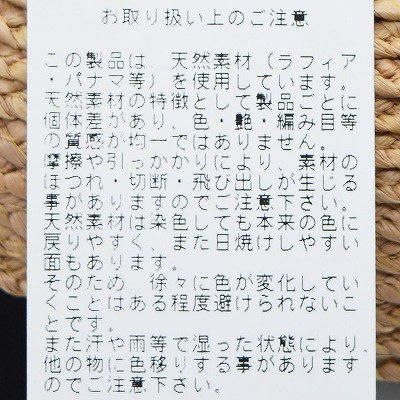 お取り扱い上のご注意
この製品は、天然素材（ラフィア
・パナマ等）を使用しています。
天然素材の特徴として製品ごとに
個体差があり、色・艶・編み目等
の質感が均一ではありません。
摩擦や引っかかりにより、素材の
ほつれ・切断・飛び出しが生じる
事がありますのでご注意下さい。
天然素材は染色しても本来の色に
戻りやすく、また日焼けしやすい
面もあります。
そのため　徐々に色が変化してい
くことはある程度避けられないこ
とです。
また汗や雨等で湿った状態により、
他の物に色移りする事があります
のでご注意下さい。